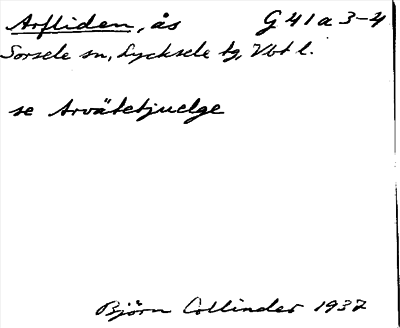 Arfliden, ås G 41 a 3-4
Sorsele sn, Lycksele tg, Vbt l.
se Arvätetjuelge
Björn Collinder 1937